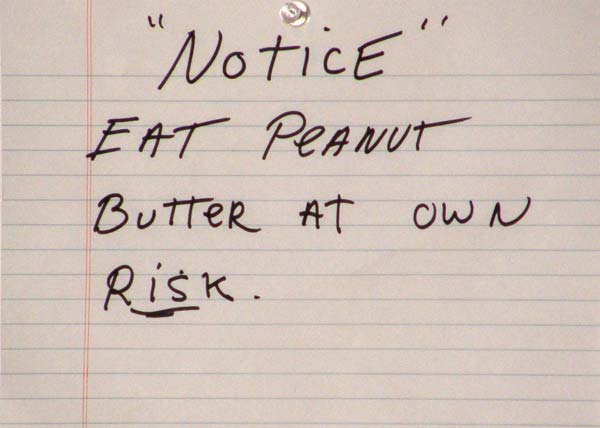 "NOTiCE"
EAT PEANUT
BUTTER AT OWN
RiSK.